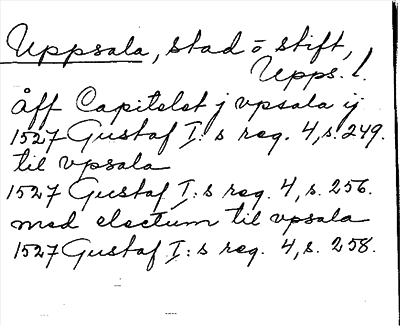 Uppsala, stad o stift,
Upps. l.
åff Capitelet j vpsala ij
1527 Gustaf I:s reg. 4, s. 249.
til vpsala
1527 Gustaf I:s reg. 4, s. 256.
med electum til vpsala
1527 Gustaf I:s reg. 4, s. 258.